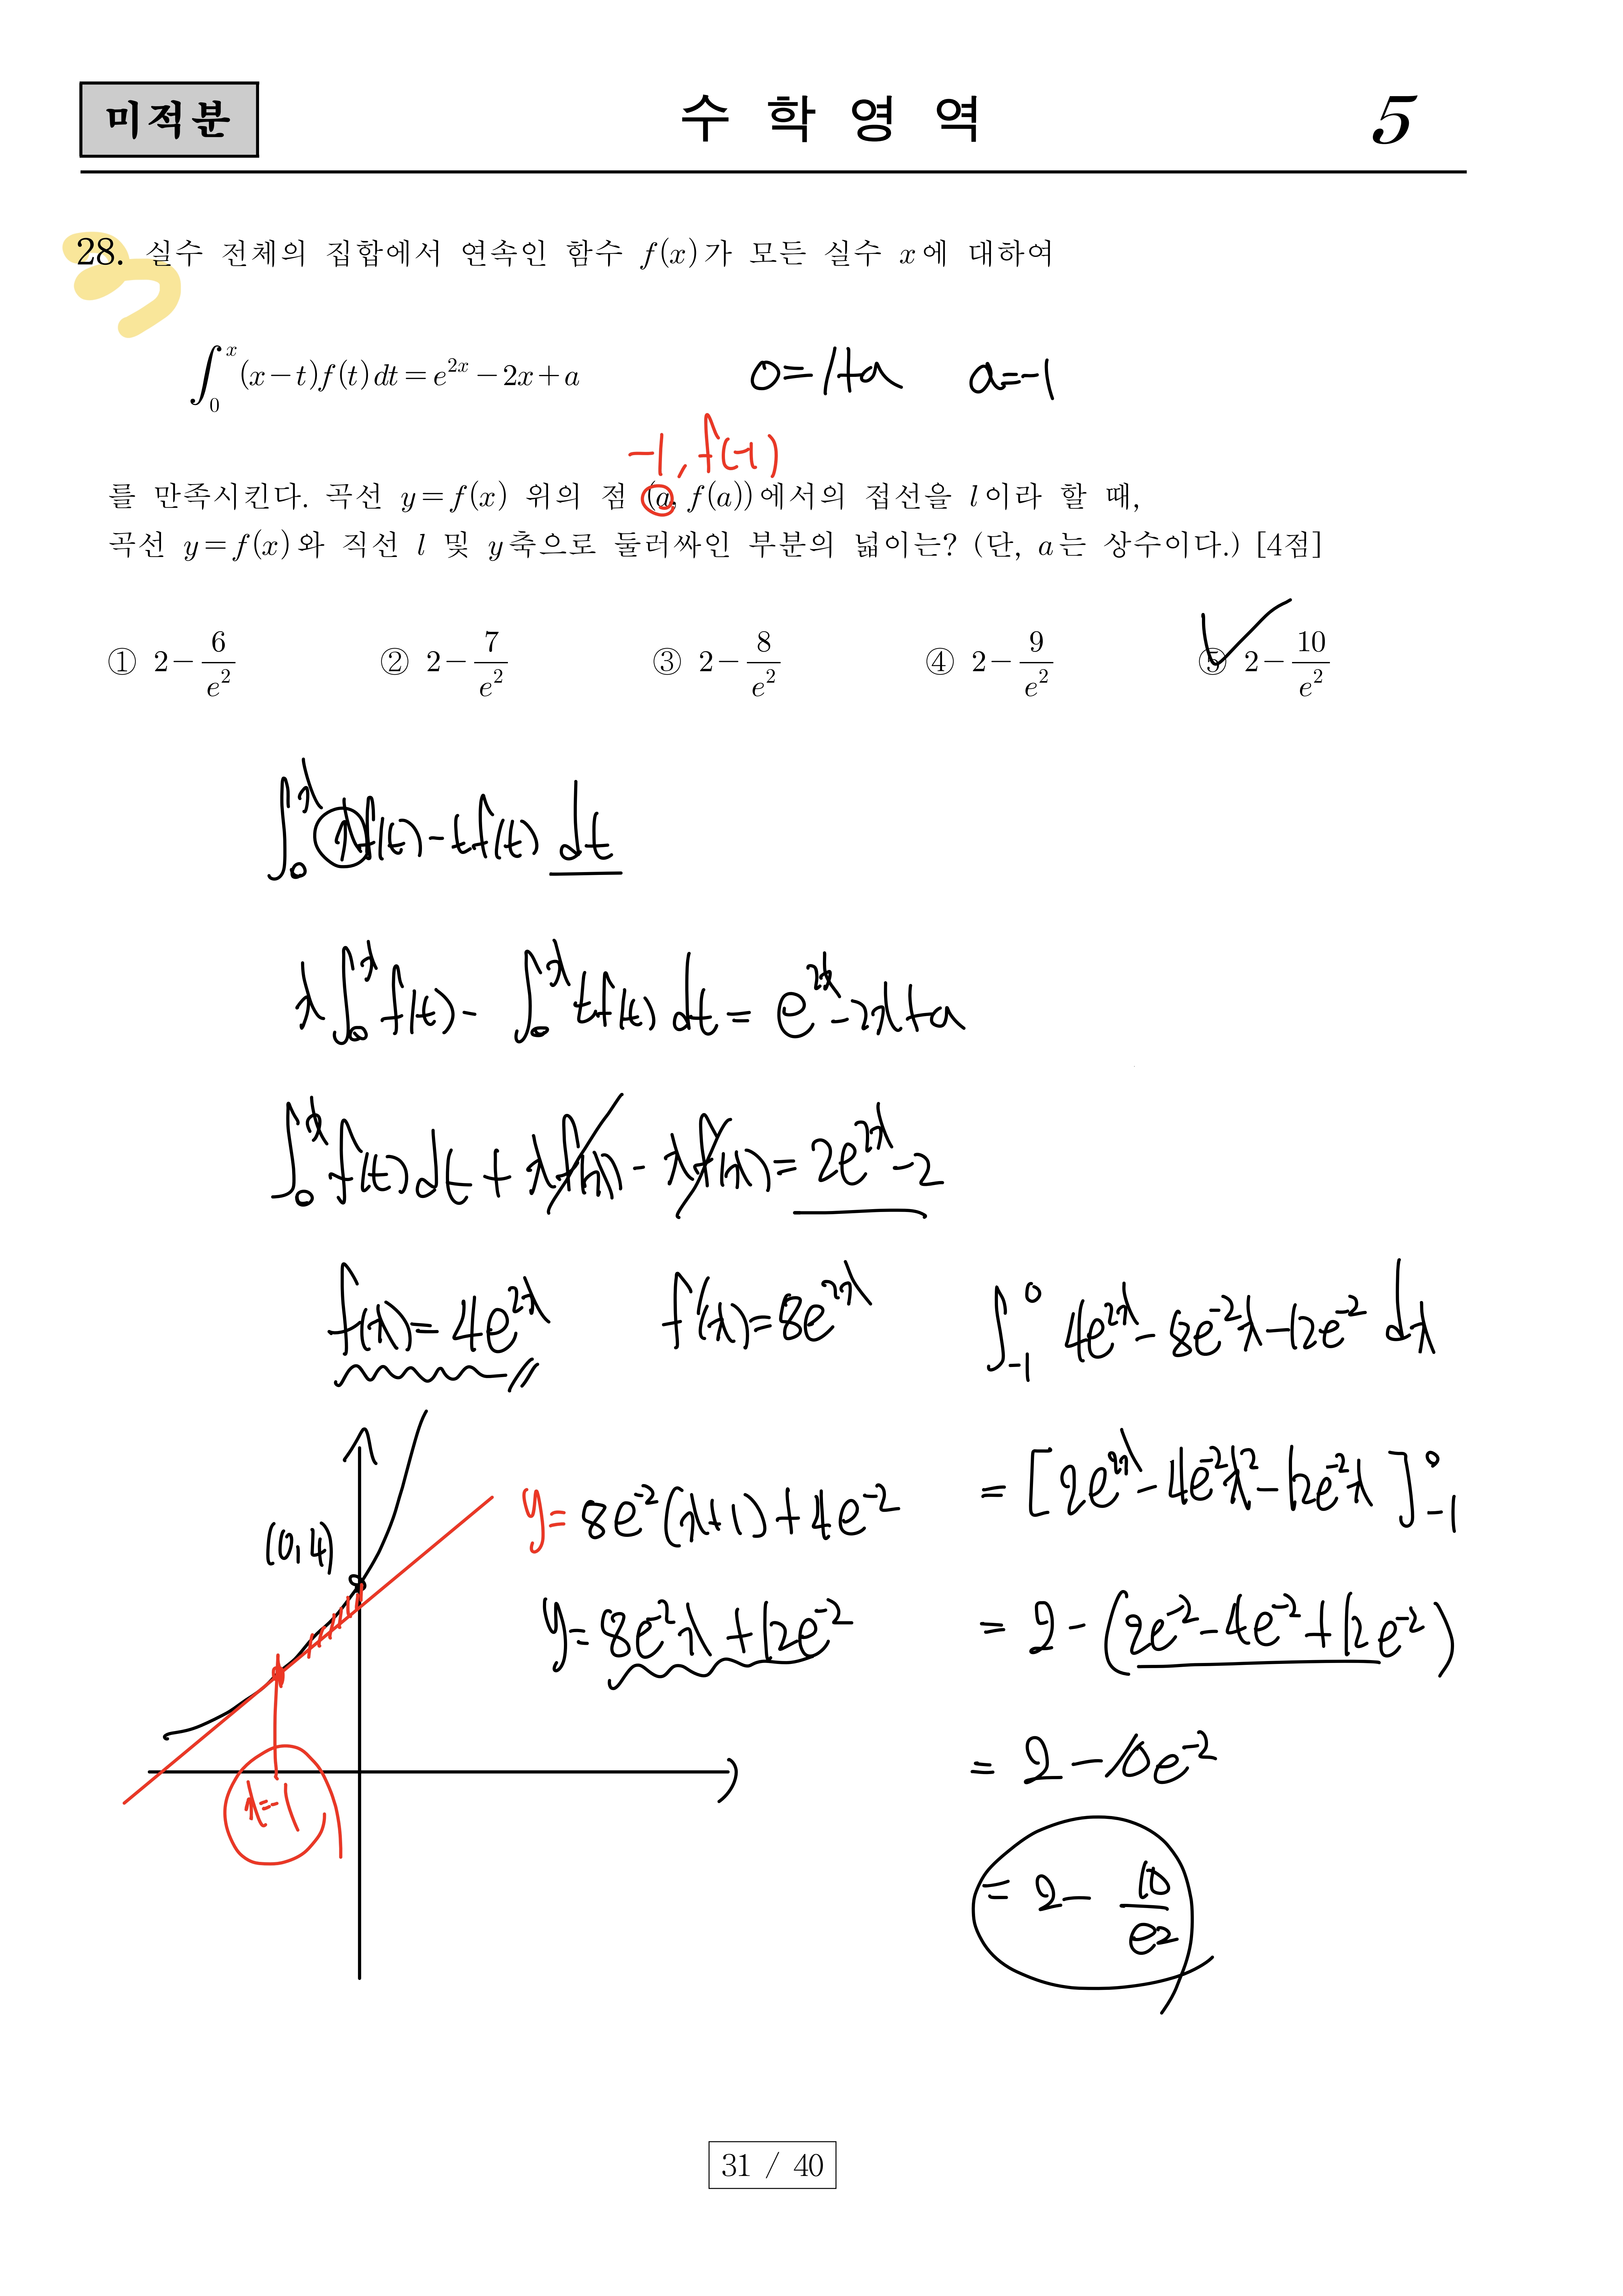 미적분 수 학 영 역 5
28. 실수 전체의 집합에서 연속인 함수 f(x)가 모든 실수 x에 대하여
∫₀ˣ (x-t)f(t)dt = e^{2x} - 2x + a
0=1+a a=-1
-1, f(-1)
를 만족시킨다. 곡선 y=f(x) 위의 점 (a, f(a))에서의 접선을 l이라 할 때,
곡선 y=f(x)와 직선 l 및 y축으로 둘러싸인 부분의 넓이는? (단, a는 상수이다.) [4점]
① 2-6/e² ② 2-7/e² ③ 2-8/e² ④ 2-9/e² ⑤ 2-10/e²
∫₀ˣ xf(t)-tf(t) dt
x∫₀ˣ f(t) - ∫₀ˣ tf(t) dt = e^{2x}-2x+a
∫₀ˣ f(t)dt + xf(x) - xf(x) = 2e^{2x}-2
f(x)=4e^{2x} f'(x)=8e^{2x}
(0,4)
x=-1
y=8e^{-2}(x+1)+4e^{-2}
y=8e^{-2}x+12e^{-2}
∫₋₁⁰ 4e^{2x}-8e^{-2}x-12e^{-2} dx
=[2e^{2x}-4e^{-2}x²-12e^{-2}x]₋₁⁰
=2-(2e^{-2}-4e^{-2}+12e^{-2})
=2-10e^{-2}
=2-10/e2
31 / 40